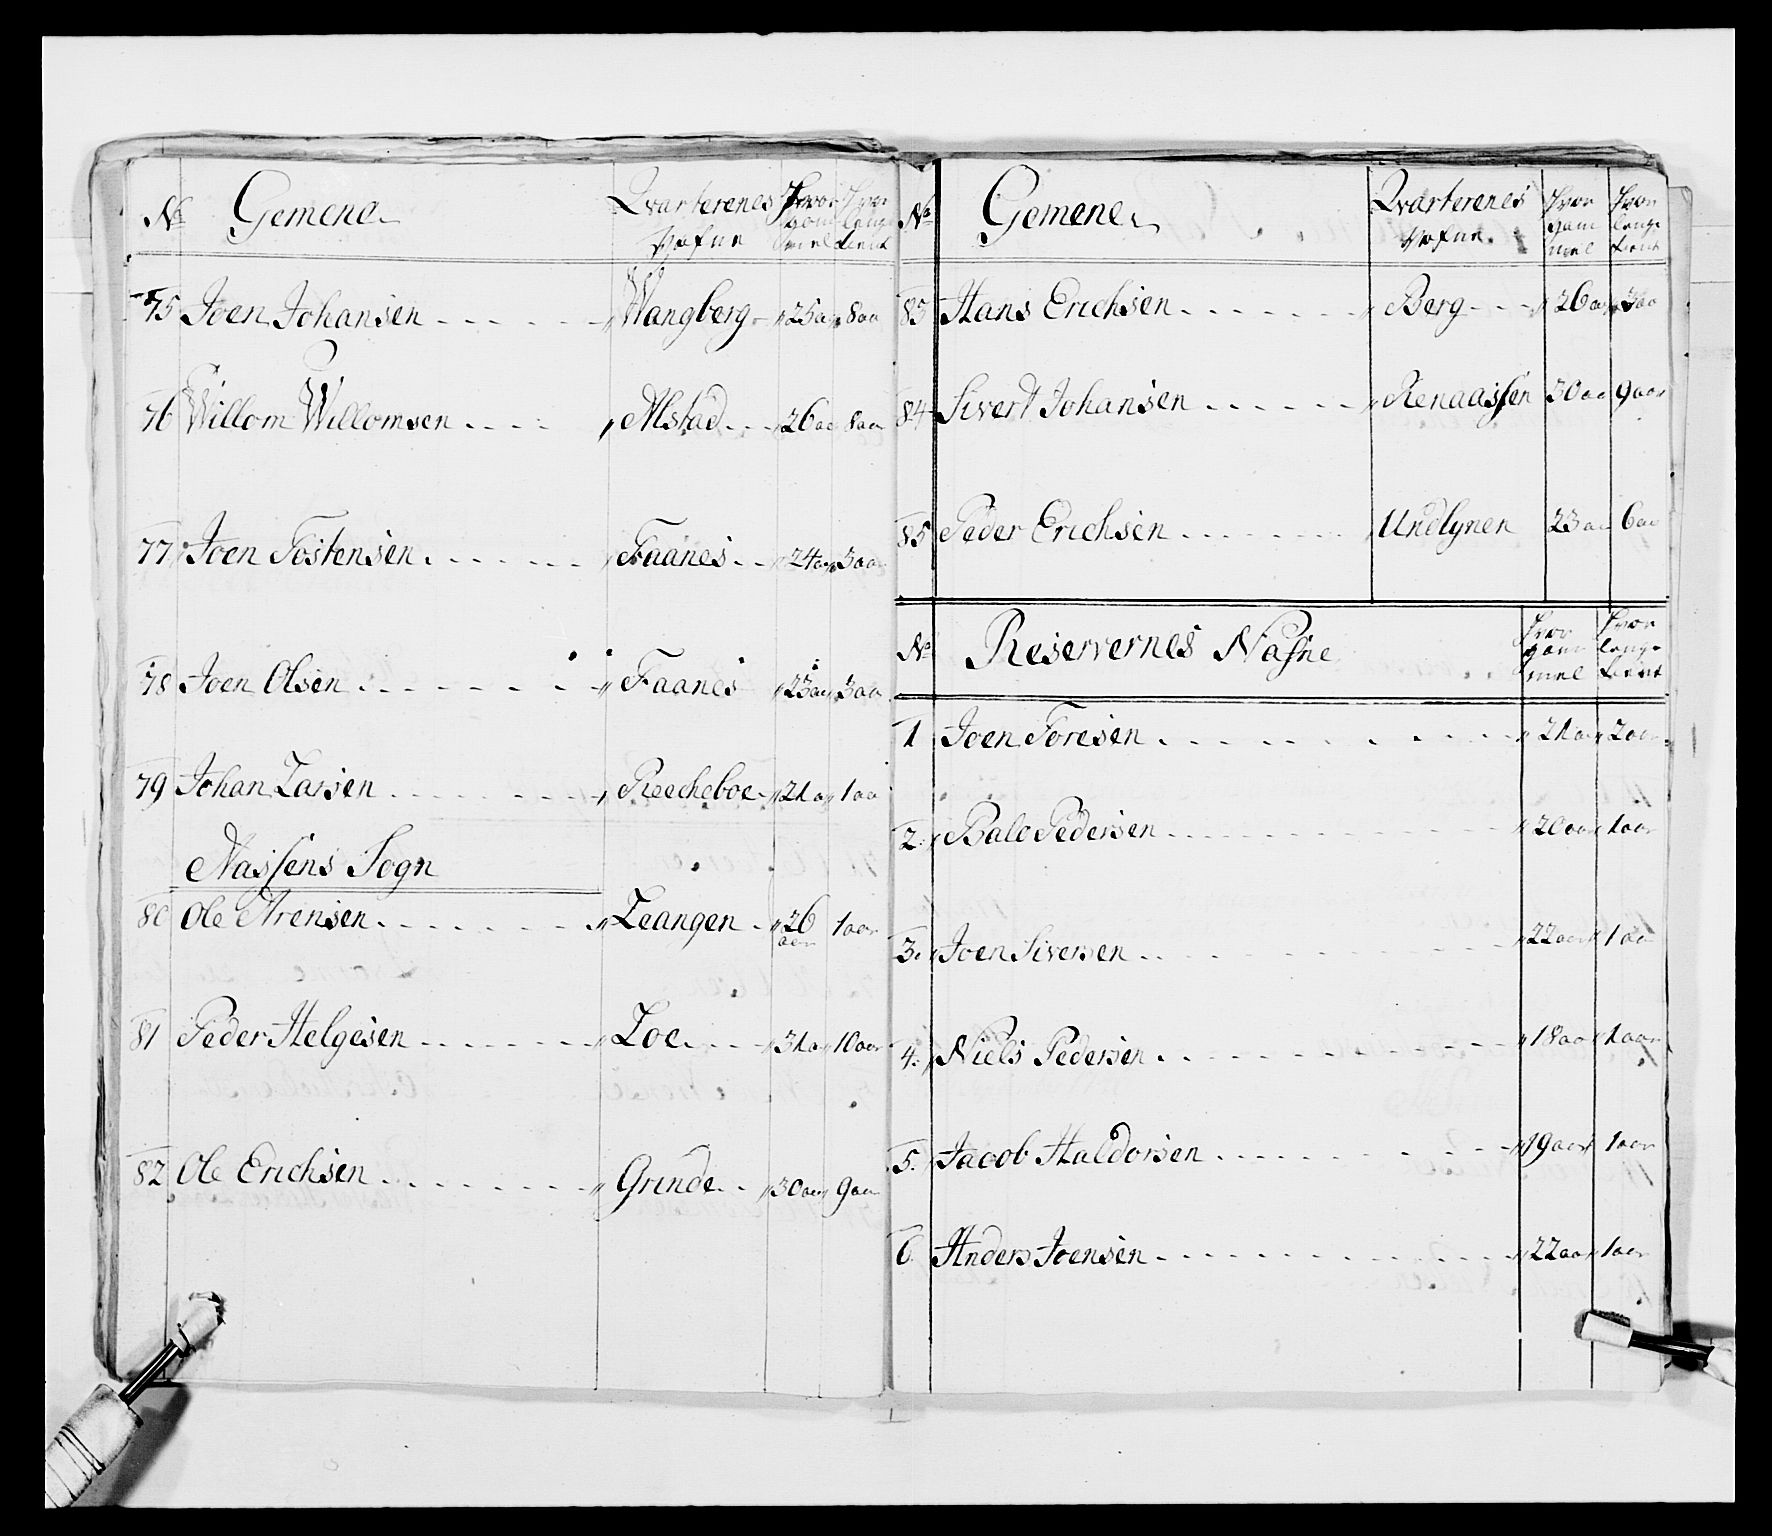 No Gemene Qvarterenes Nafne Hvor gammel Hvor lenge tient
75 Joen Johansen Wangberg 25 aar 8 aar
76 Willom Willomsen Alstad 26 aar 8 aar
77 Joen Tostensen Faanes 24 aar 3 aar
78 Joen Olsen Faanes 23 aar 3 aar
79 Johan Larsen Reecheboe 21 aar 1 aar
Nassens Sogn
80 Ole Arensen Leangen 26 aar 1 aar
81 Peder Helgesen Loe 31 aar 10 aar
82 Ole Erichsen Grinde 30 aar 9 aar
No Gemene Qvarterenes Nafne Hvor gammel Hvor lenge tient
83 Hans Erichsen Berg 26 aar 3 aar
84 Sivert Johansen Renaassen 30 aar 9 aar
85 Peder Erichsen Undlynen 23 aar 6 aar
No Reservernes Nafne Hvor gammel Hvor lenge tient
1 Joen Toresen 21 aar 2 aar
2 Bale Pedersen 20 aar 1 aar
3. Joen Siversen 22 aar 1 aar
4. Niels Pedersen 18 aar 1 aar
5. Jacob Haldorsen 19 aar 1 aar
6. Anders Joensen 22 aar 1 aar